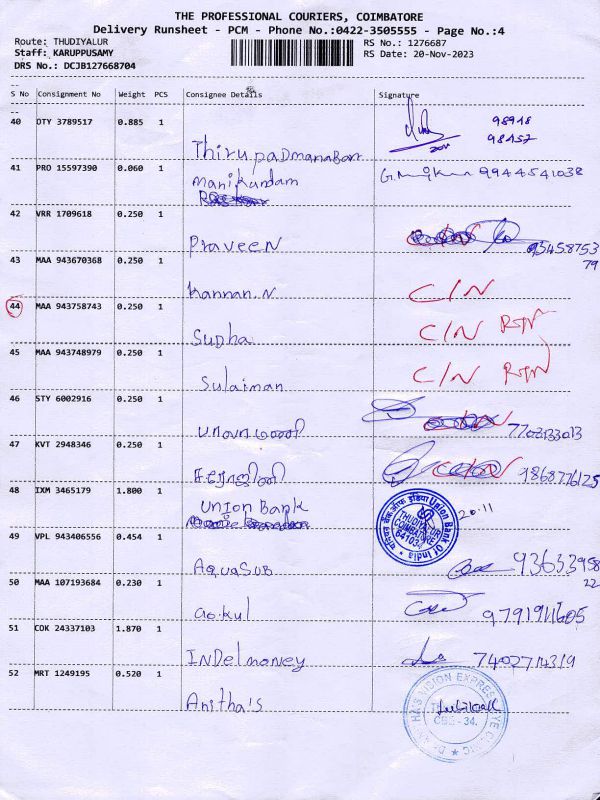 THE PROFESSIONAL COURIERS, COIMBATORE
Delivery Runsheet - PCM - Phone No.:0422-3505555 - Page No.:4
Route: THUDIYALUR RS No.: 1276687
Staff: KARUPPUSAMY RS Date: 20-Nov-2023
DRS No.: DCJB127668704
S No Consignment No Weight PCS Consignee Details Signature
40 DTY 3789517 0.885 1 98948
98457
Thirupadmanaban
41 PRO 15597390 0.060 1 manikandam 9944541038
42 VRR 1709618 0.250 1
Praveen 95458753
79
43 MAA 943670368 0.250 1
Kannan.N C/N
44 MAA 943758743 0.250 1
Sudha C/N RTN
45 MAA 943748979 0.250 1
Sulaiman C/N RTN
46 STY 6002916 0.250 1
7702133013
47 KVT 2948346 0.250 1
சரோஜினி 9868776125
48 IXM 3465179 1.800 1 Union Bank 20.11
Union Bank Of India
THUDIYALUR
COIMBATORE
49 VPL 943406556 0.454 1
AquaSub 93633958
22
50 MAA 107193684 0.230 1
Gokul 9791911605
51 COK 24337103 1.870 1
INDelmoney 7402714319
52 MRT 1249195 0.520 1
Anitha's
CBE - 34.